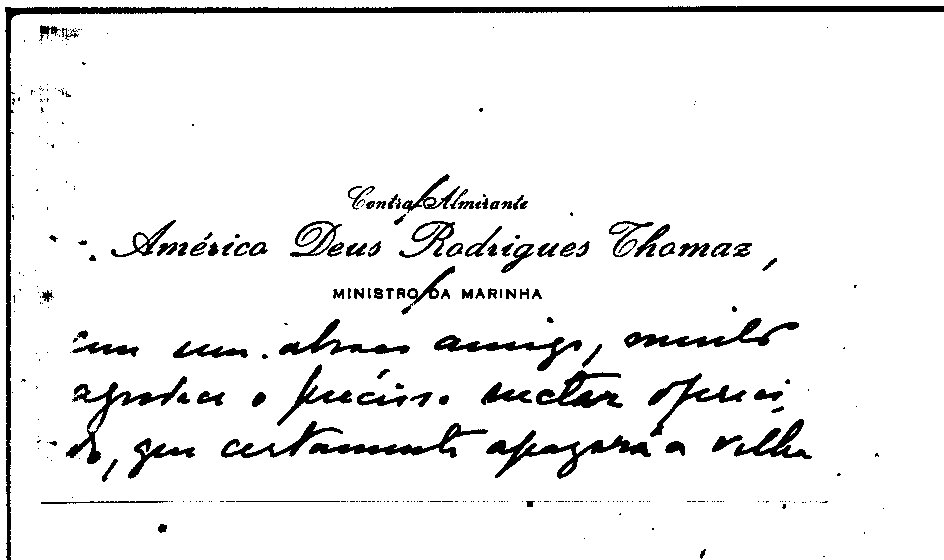 Contra Almirante
Américo Deus Rodrigues Thomaz,
MINISTRO DA MARINHA
com um abraço amigo, muito
agradece o precioso nectar ofereci
do, que certamente apagará a velha